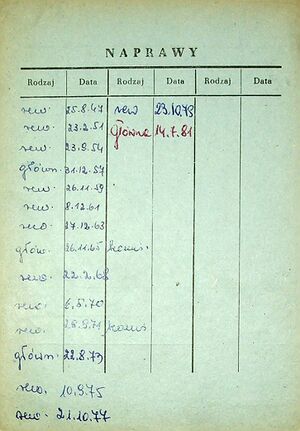 NAPRAWY
Rodzaj Data Rodzaj Data Rodzaj Data
rew. 25.8.47 rew 23.10.79
rew. 23.2.51 główna 14.7.81
rew. 23.8.54
główn. 31.12.57
rew. 26.11.59
rew. 8.12.61
rew. 27.12.63
głów. 26.11.65
rew. 22.2.68
rew. 6.5.70
rew. 28.9.71
główn. 22.8.73
rew. 10.9.75
rew. 21.10.77